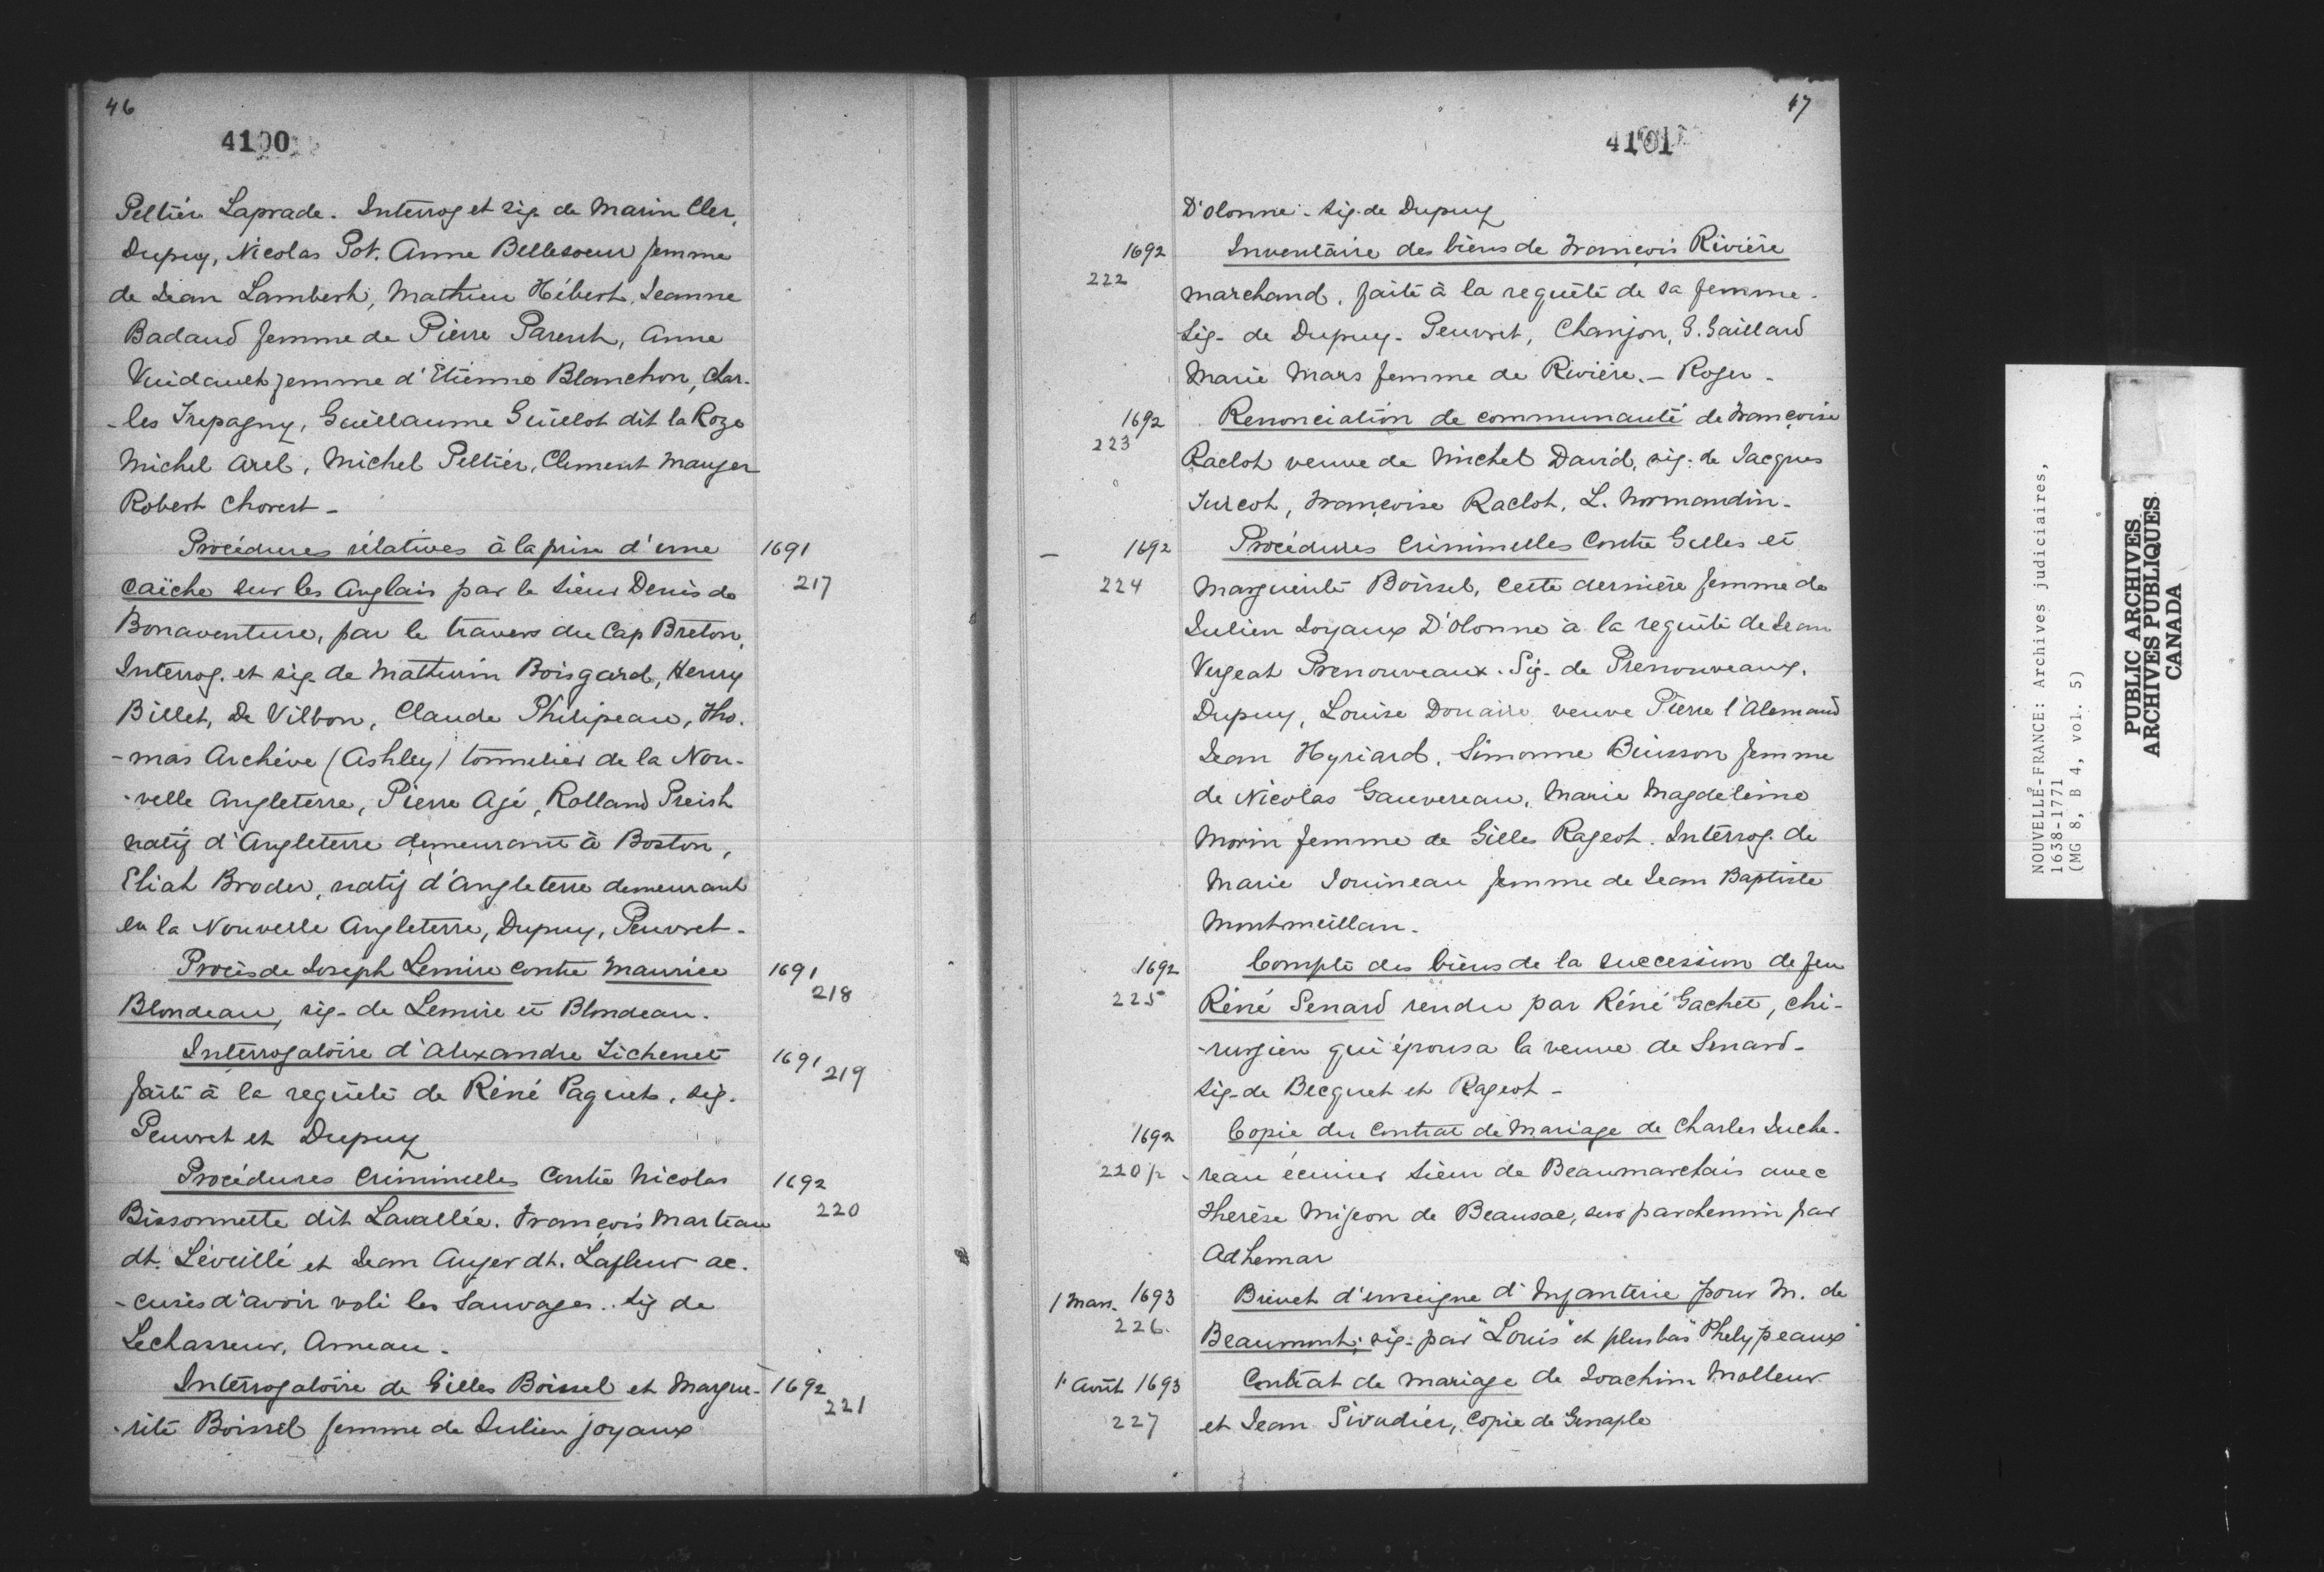 46
4100
Peltier Laprade. Interrog et sig. de Marin Cler,
Dupuy, Nicolas Pot. Anne Bellesoeur femme
de Jean Lambert, Mathieu Hébert, Jeanne
Badaud femme de Pierre Parent, Anne
Vuidault femme d'Etienne Blanchon, Char-
-les Trepagny, Guillaume Guillot dit la Roze
Michel Arel, Michel Peltier, Clement Mauger
Robert Chorest -
Procédures rélatives à la prise d'une 1691
caïche sur les Anglais par le Sieur Denis de 217
Bonaventure, par le travers du Cap Breton,
Interrog. et sig. de Mathurin Boisgard, Henry
Billet, De Vilbon, Claude Philipeau, Tho-
-mas Archive (Ashley) tonnelier de la Nou-
-velle Angleterre, Pierre Agé, Rolland Preish
natif d'Angleterre demeurant à Boston,
Eliah Broder, natif d'Angleterre demeurant
en la Nouvelle Angleterre, Dupuy, Peuvret.
Procès de Joseph Lemire contre Maurice 1691
Blondeau, sig. de Lemire et Blondeau. 218
Interrogatoire d'Alexandre Tichenet 1691
faite à la requête de Réné Paquet. sig. 219
Peuvret et Dupuy
Procédures Criminelles Contre Nicolas 1692
Bissonnette dit Lavallée. François Marteau 220
dt. Léveillé et Jean Auger dt. Lafleur ac-
-cusés d'avoir volé les Sauvages. Sig de
Lechasseur, Ameau.
Interrogatoire de Gilles Boissel et Margue- 1692
-rite Boissel femme de Julien joyaux 221
47
4101
D'olonne. Sig. de Dupuy
1692 Inventaire des biens de François Rivière
222 marchand, faite à la requête de sa femme.
Sig. de Dupuy. Peuvret, Chanjon, G. Gaillard
Marie Mars femme de Rivière. - Roger.
1692 Renonciation de communauté de Françoise
223 Raclot veuve de Michel David, sig. de Jacques
Turcot, Françoise Raclot, L. Normandin.
- 1692 Procédures Criminelles Contre Gilles et
224 Marguerite Boissel, cette dernière femme de
Julien Joyaux D'olonne à la requête de Jean
Vergeat Prenouveaux. Sig. de Prenouveaux.
Dupuy, Louise Douaire veuve Pierre l'Alemand
Jean Hyriard, Simonne Buisson femme
de Nicolas Gauvereau, Marie Magdeleine
Morin femme de Gilles Rageot. Interrog. de
Marie Jouineau femme de Jean Baptiste
Montmeillan.
1692 Compte des biens de la succession de feu
225 Réné Senard rendu par Réné Gachet, chi-
-rurgien qui épousa la veuve de Senard.
Sig. de Becquet et Rageot -
1692 Copie du Contrat de Mariage de Charles Juche-
220 1/2 -reau écuier Sieur de Beaumarchais avec
Therèse Migeon de Beausac, sur parchemin par
Adhemar
1 Mars. 1693 Brevet d'enseigne d'Infanterie pour M. de
226. Beaumont; sig. par "Louis" et plus bas "Phelypeaux"
1r Août 1693 Contrat de mariage de Joachim Molleur
227 et Jean Sivadier, Copie de Genaple
NOUVELLE-FRANCE: Archives judiciaires,
1638-1771
(MG 8, B 4, vol. 5)
PUBLIC ARCHIVES
ARCHIVES PUBLIQUES
CANADA